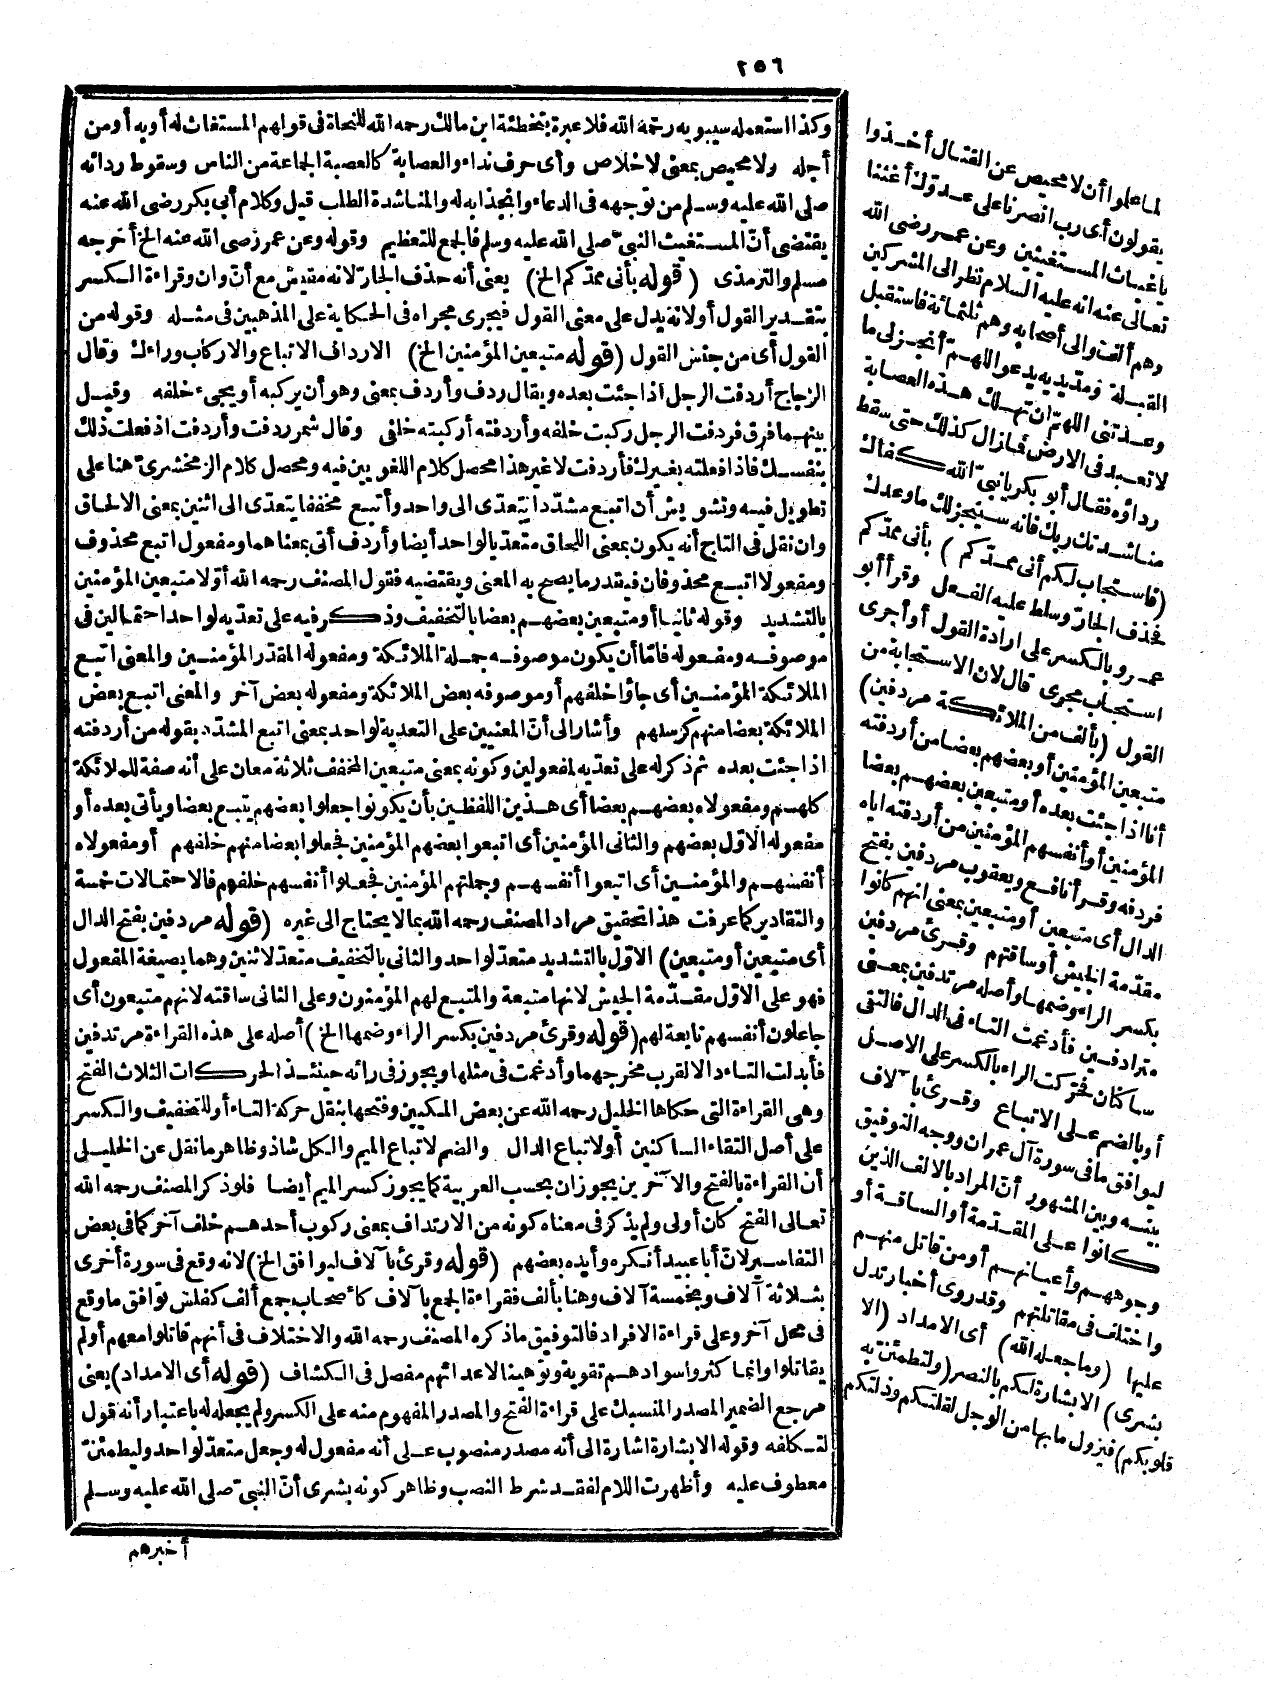 ٢٥٦
وكذا استعمله سيبويه رحمة الله فلا عبرة بتخطئة ابن مالك رحمه الله للنحاة فى قولهم المستغاث له أو به أو من
أجله ولا محيص بمعنى لا خلاص وأى حرف نداء والعصابة كالعصبة الجماعة من الناس وسقوط ردائه
صلى الله عليه وسلم من توجهه فى الدعاء وانجذابه له والمناشدة الطلب قيل وكلام أبى بكر رضى الله عنه
يقتضى أنّ المستغيث النبىّ صلى الله عليه وسلم فالجمع للتعظيم وقوله وعن عمر رضى الله عنه الخ أخرجه
مسلم والترمذى (قوله بأنى ممدّكم الخ) يعنى أنه حذف الجارّ لانه مقيس مع أنّ وان وقراءة الكسر
بتقدير القول أو لانه يدل على معنى القول فيجرى مجراه فى الحكاية على المذهبين فى مثله وقوله من
القول أى من جنس القول (قوله متبعين المؤمنين الخ) الارداف الاتباع والاركاب وراءك وقال
الزجاج أردفت الرجل اذا جئت بعده ويقال ردف وأردف بمعنى وهو أن يركبه أو يجىء خلفه وقيل
بينهما فرق فردفت الرجل ركبت خلفه وأردفته أركبته خلفى وقال شمر ردفت وأردفت اذ فعلت ذلك
بنفسك فاذا فعلته بغيرك فأردفت لا غير هذا محصل كلام اللغويين فيه ومحصل كلام الزمخشرىّ هنا على
تطويل فيه وتشويش أن اتبع مشدّدا يتعدّى الى واحد وأتبع مخففا يتعدّى الى اثنين بمعنى الالحاق
وان نقل فى التاج أنه يكون بمعنى اللحاق متعديا لواحد أيضا وأردف أتى بمعناهما ومفعول اتبع محذوف
ومفعولا اتبع محذوفان فيقدر ما يصح به المعنى ويقتضيه فقول المصنف رحمه الله أوّلا متبعين المؤمنين
بالتشديد وقوله ثانيا أو متبعين بعضهم بعضا بالتخفيف وذكر فيه على تعديه لواحد احتمالين فى
موصوفه ومفعوله فامّا أن يكون موصوفه جملة الملائكة ومفعوله المقدر المؤمنين والمعنى اتبع
الملائكة المؤمنين أى جاؤا خلفهم أو موصوفه بعض الملائكة ومفعوله بعض آخر والمعنى اتبع بعض
الملائكة بعضا منهم كرسلهم وأشار الى أنّ المعنيين على التعدية لواحد بمعنى اتبع المشدّد بقوله من أردفته
اذا جئت بعده ثم ذكر له على تعديه لمفعولين وكونه بمعنى متبعين المخفف ثلاثة معان على أنه صفة للملائكة
كلهم ومفعولاه بعضهم بعضا أى هذين اللفظين بأن يكونوا جعلوا بعضهم يتبع بعضا ويأتى بعده أو
مفعوله الاوّل بعضهم والثانى المؤمنين أى اتبعوا بعضهم المؤمنين فجعلوا بعضا منهم خلفهم أو مفعولاه
أنفسهم والمؤمنين أى اتبعوا أنفسهم وجملتهم المؤمنين فجعلوا أنفسهم خلفهم فالاحتمالات خمسة
والتقادير كما عرفت هذا تحقيق مراد المصنف رحمه الله بما لا يحتاج الى غيره (قوله مردفين بفتح الدال
أى متبعين أو متبعين) الاوّل بالتشديد متعدّ لواحد والثانى بالتخفيف متعدّ لاثنين وهما بصيغة المفعول
فهو على الاوّل مقدّمة الجيش لانها متبعة والمتبع لهم المؤمنون وعلى الثانى ساقته لانهم متبعون أى
جاعلون أنفسهم تابعة لهم (قوله وقرئ مردفين بكسر الراء وضمها الخ) أصله على هذه القراءة مرتدفين
فأبدلت التاء دالا لقرب مخرجهما وأدغمت فى مثلها ويجوز فى رائه حينئذ الحركات الثلاث الفتح
وهى القراءة التى حكاها الخليل رحمه الله عن بعض المكيين وفتحها بنقل حركة التاء أو للتخفيف والكسر
على أصل التقاء الساكنين أو لاتباع الدال والضم لاتباع الميم والكل شاذ وظاهر ما نقل عن الخليل
أن القراءة بالفتح والآخرين يجوزان بحسب العربية كما يجوز كسر الميم أيضا فلو ذكر المصنف رحمه الله
تعالى الفتح كان أولى ولم يذكر فى معناه كونه من الارتداف بمعنى ركوب أحدهم خلف آخر كما فى بعض
التفاسير لانّ أبا عبيد أنكره وأيده بعضهم (قوله وقرئ بآلاف ليوافق الخ) لانه وقع فى سورة أخرى
بثلاثة آلاف وبخمسة آلاف وهنا بألف فقراءة الجمع بآلاف كأصحاب جمع ألف كفلس توافق ما وقع
فى محل آخر وعلى قراءة الافراد فالتوفيق ما ذكره المصنف رحمه الله والاختلاف فى أنهم قاتلوا معهم أو لم
يقاتلوا وانما كثروا سوادهم تقوية وتوهينا لاعدائهم مفصل فى الكشاف (قوله أى الامداد) يعنى
مرجع الضمير المصدر المنسبك على قراءة الفتح والمصدر المفهوم منه على الكسر ولم يجعله له باعتبار أنه قول
لتكلفه وقوله الا بشارة اشارة الى أنه مصدر منصوب على أنه مفعول له وجعل متعدّ لواحد وليطمئنّ
معطوف عليه وأظهرت اللام لفقد شرط النصب وظاهر كونه بشرى أنّ النبىّ صلى الله عليه وسلم
أخبرهم
لما علموا أن لا محيص عن القتال أخذوا
يقولون أى رب انصرنا على عدوّك أغثنا
يا غياث المستغيثين وعن عمر رضى الله
تعالى عنه انه عليه السلام نظر الى المشركين
وهم ألف والى أصحابه وهم ثلثمائة فاستقبل
القبلة ومدّ يديه يدعو اللهمّ أنجز لى ما
وعدتنى اللهمّ ان تهلك هذه العصابة
لا تعبد فى الارض فما زال كذلك حتى سقط
رداؤه فقال أبو بكر يا نبىّ الله كفاك
مناشدتك ربك فانه سينجز لك ما وعدك
(فاستجاب لكم أنى ممدّكم) بأنى ممدّكم
فحذف الجارّ وسلط عليه الفعل وقرأ أبو
عمرو بالكسر على ارادة القول أو أجرى
استجاب مجرى قال لان الاستجابة من
القول (بألف من الملائكة مردفين)
متبعين المؤمنين أو بعضهم بعضا من أردفته
أنا اذا جئت بعده أو متبعين بعضهم بعضا
المؤمنين أو أنفسهم المؤمنين من أردفته اياه
فردفه وقرأ نافع ويعقوب مردفين بفتح
الدال أى متبعين أو متبعين بمعنى انهم كانوا
مقدّمة الجيش أو ساقتهم وقرئ مردفين
بكسر الراء وضمها وأصله مرتدفين بمعنى
مترادفين فأدغمت التاء فى الدال فالتقى
ساكنان فحرّكت الراء بالكسر على الاصل
أو بالضم على الاتباع وقرئ بآلاف
ليوافق ما فى سورة آل عمران ووجه التوفيق
بينه وبين المشهور أنّ المراد بالالف الذين
كانوا على المقدّمة أو الساقة أو
وجوههم وأعيانهم أو من قاتل منهم
واختلف فى مقاتلتهم وقد روى أخبار تدل
عليها (وما جعله الله) أى الامداد (الا
بشرى) الا بشارة لكم بالنصر (ولتطمئن به
قلوبكم) فيزول ما بها من الوجل لقلتكم وذلتكم